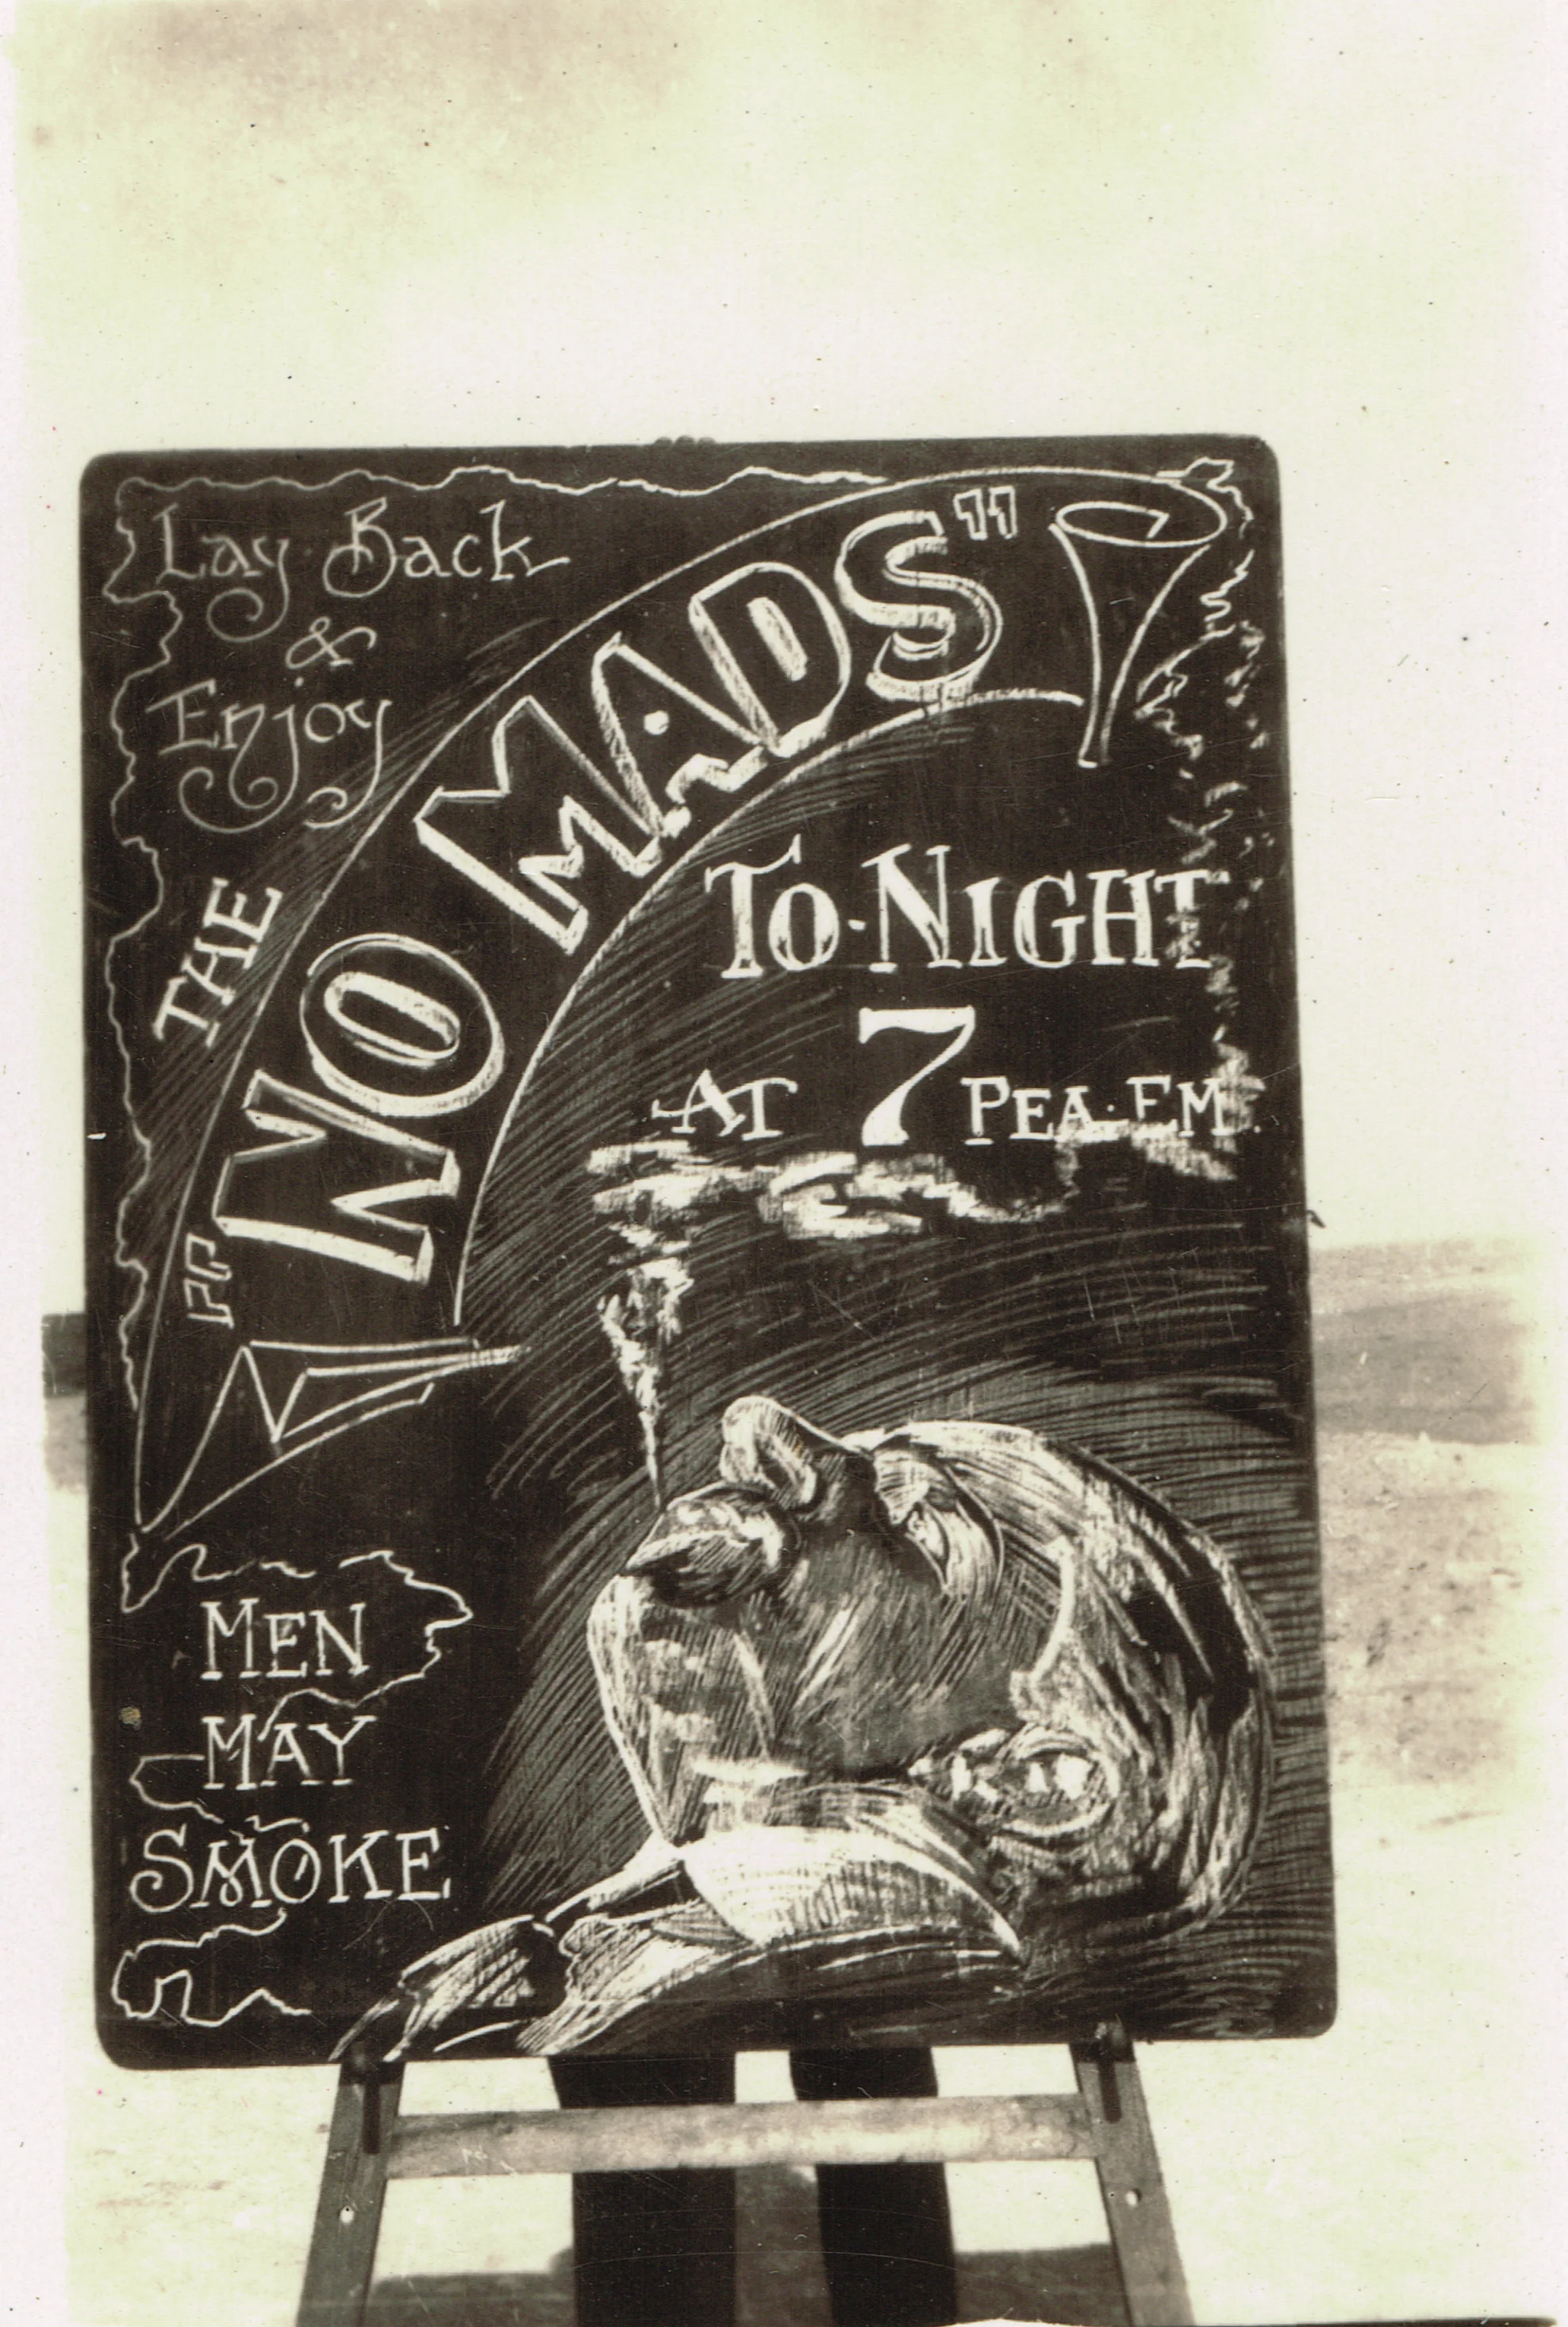 Lay Back
&
Enjoy
THE
"NOMADS"
TO-NIGHT
AT 7 PEA·EM.
MEN
MAY
SMOKE